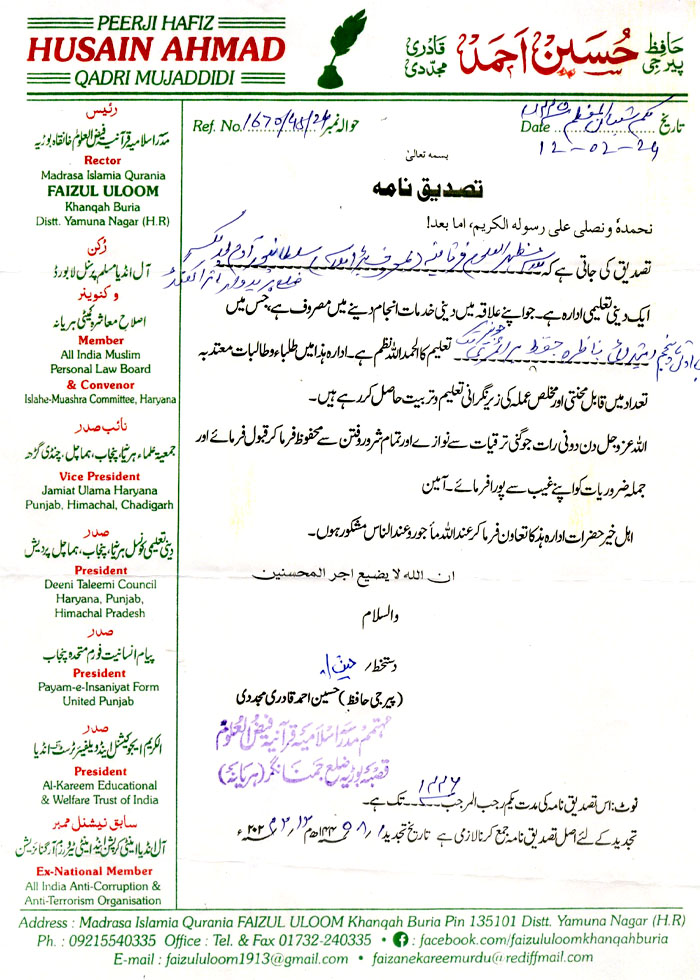 PEERJI HAFIZ
HUSAIN AHMAD
QADRI MUJADDIDI
حافظ پیرجی حُسین اَحمد قادری مجدّدی
Ref. No. 1670/45/24 حوالہ نمبر
تاریخ
Date 12-02-24
رئیس
مدرسہ اسلامیہ قرآنیہ فیض العلوم خانقاہ بوڑیہ
Rector
Madrasa Islamia Qurania
FAIZUL ULOOM
Khanqah Buria
Distt. Yamuna Nagar (H.R)
رُکن
آل انڈیا مسلم پرسنل لا بورڈ
و کنوینر
اصلاح معاشرہ کمیٹی ہریانہ
Member
All India Muslim
Personal Law Board
& Convenor
Islahe-Muashra Committee, Haryana
نائب صدر
جمعیۃ علماء ہریانہ، پنجاب، ہماچل، چنڈی گڑھ
Vice President
Jamiat Ulama Haryana
Punjab, Himachal, Chadigarh
صدر
دینی تعلیمی کونسل ہریانہ، پنجاب، ہماچل پردیش
President
Deeni Taleemi Council
Haryana, Punjab,
Himachal Pradesh
صدر
پیام انسانیت فورم متحدہ پنجاب
President
Payam-e-Insaniyat Form
United Punjab
صدر
الکریم ایجوکیشنل اینڈ ویلفیئر ٹرسٹ آف انڈیا
President
Al-Kareem Educational
& Welfare Trust of India
سابق نیشنل ممبر
آل انڈیا اینٹی کرپشن اینڈ اینٹی ٹیررزم آرگنائزیشن
Ex-National Member
All India Anti-Corruption &
Anti-Terrorism Organisation
بسمہ تعالیٰ
تصدیق نامہ
نحمدہٗ ونصلی علی رسولہ الکریم، اما بعد!
تصدیق کی جاتی ہے کہ
ایک دینی تعلیمی ادارہ ہے۔ جو اپنے علاقہ میں دینی خدمات انجام دینے میں مصروف ہے، جس میں
تعلیم کا الحمد للہ نظم ہے۔ ادارہ ہذا میں طلباء و طالبات معتدبہ
تعداد میں قابل محنتی اور مخلص عملہ کی زیر نگرانی تعلیم و تربیت حاصل کر رہے ہیں۔
اللہ عزوجل دن دونی رات چوگنی ترقیات سے نوازے اور تمام شرور و فتن سے محفوظ فرما کر قبول فرمائے اور
جملہ ضروریات کو اپنے غیب سے پورا فرمائے۔ آمین
اہل خیر حضرات ادارہ ہذا کا تعاون فرما کر عند اللہ ماجور و عند الناس مشکور ہوں۔
ان اللہ لا یضیع اجر المحسنین
والسلام
دستخط
(پیرجی حافظ) حسین احمد قادری مجددی
مہتمم مدرسہ اسلامیہ قرآنیہ فیض العلوم
قصبہ بوڑیہ ضلع جمنا نگر (ہریانہ)
نوٹ: اس تصدیق نامہ کی مدت یکم رجب المرجب ۱۴۴۶ تک ہے۔
تجدید کے لئے اصل تصدیق نامہ جمع کرنا لازمی ہے تاریخ تجدید
Address : Madrasa Islamia Qurania FAIZUL ULOOM Khanqah Buria Pin 135101 Distt. Yamuna Nagar (H.R)
Ph. : 09215540335 Office : Tel. & Fax 01732-240335 • : facebook.com/faizululoomkhanqahburia
E-mail : faizululoom1913@gmail.com • faizanekareemurdu@rediffmail.com